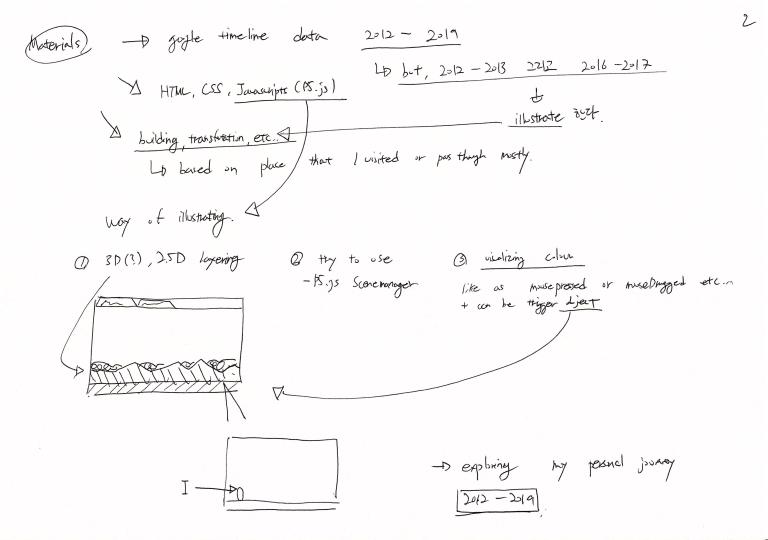 2
Materials → google timeline data 2012 – 2019
↳ but, 2012 – 2013 그리고 2016 – 2017
HTML, CSS, Javascripts (P5.js)
illustrate 한다.
building, transtration, etc..
↳ based on place that I visited or pas though mostly.
way of illustrating.
① 3D(?), 2.5D layering
② try to use
– P5.js Scenemanager
③ visualizing colour
like as mousepressed or mouseDragged etc...
+ can be trigger object
I →
→ exploring my personal journey
2012 – 2019